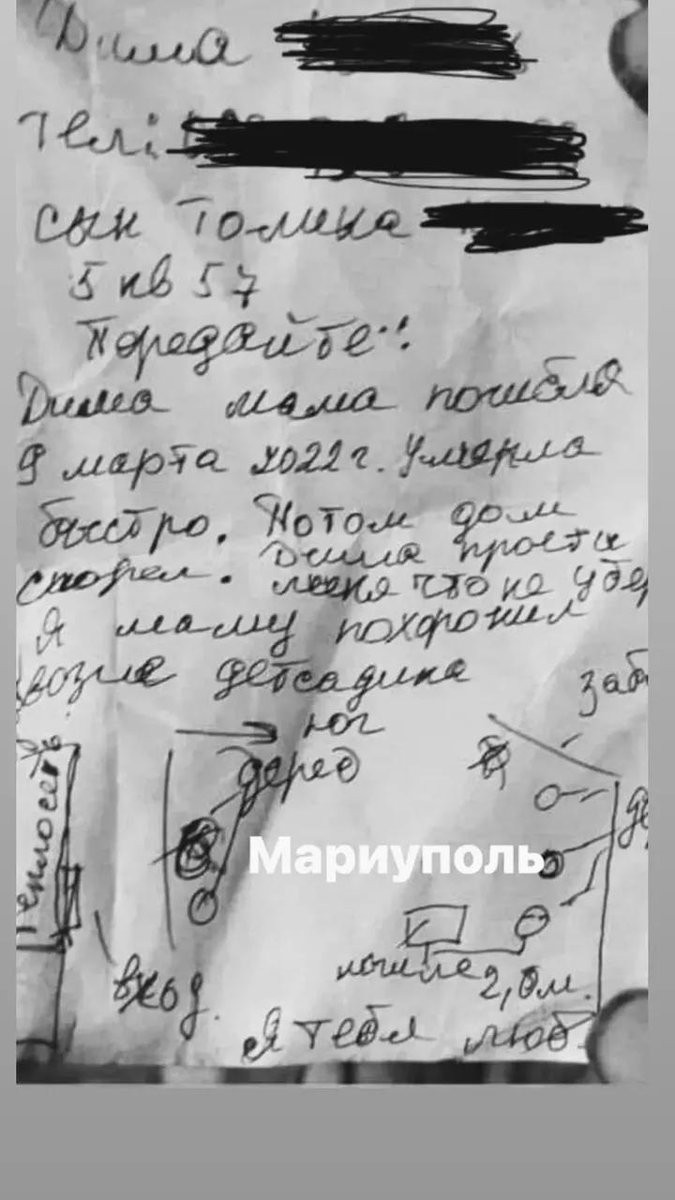 Дима
Тел:
сын Толика
5 кв 57
Передайте!!
Дима мама погибла
9 марта 2022 г. Умерла
быстро. Потом дом
сгорел. Дима прости
меня что не убер
Я маму похоронил
возле детсадика
заб
юг
дерев
Теплосеть
Мариуполь
де
могила 2,0м.
вход.
Я тебя люб